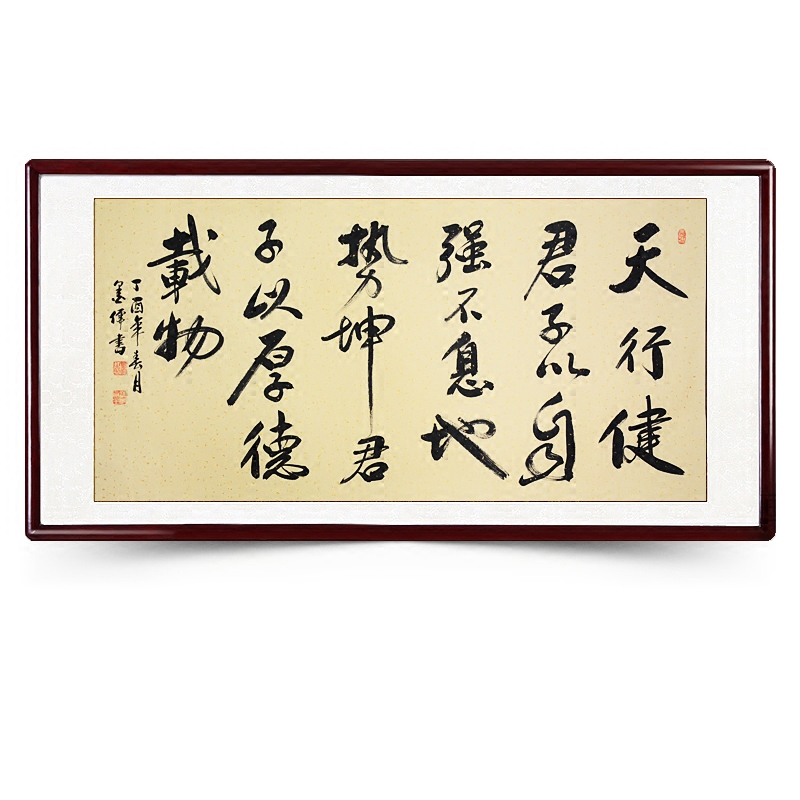 天行健
君子以自
强不息地
势坤君
子以厚德
载物
丁酉年春月
墨儒書